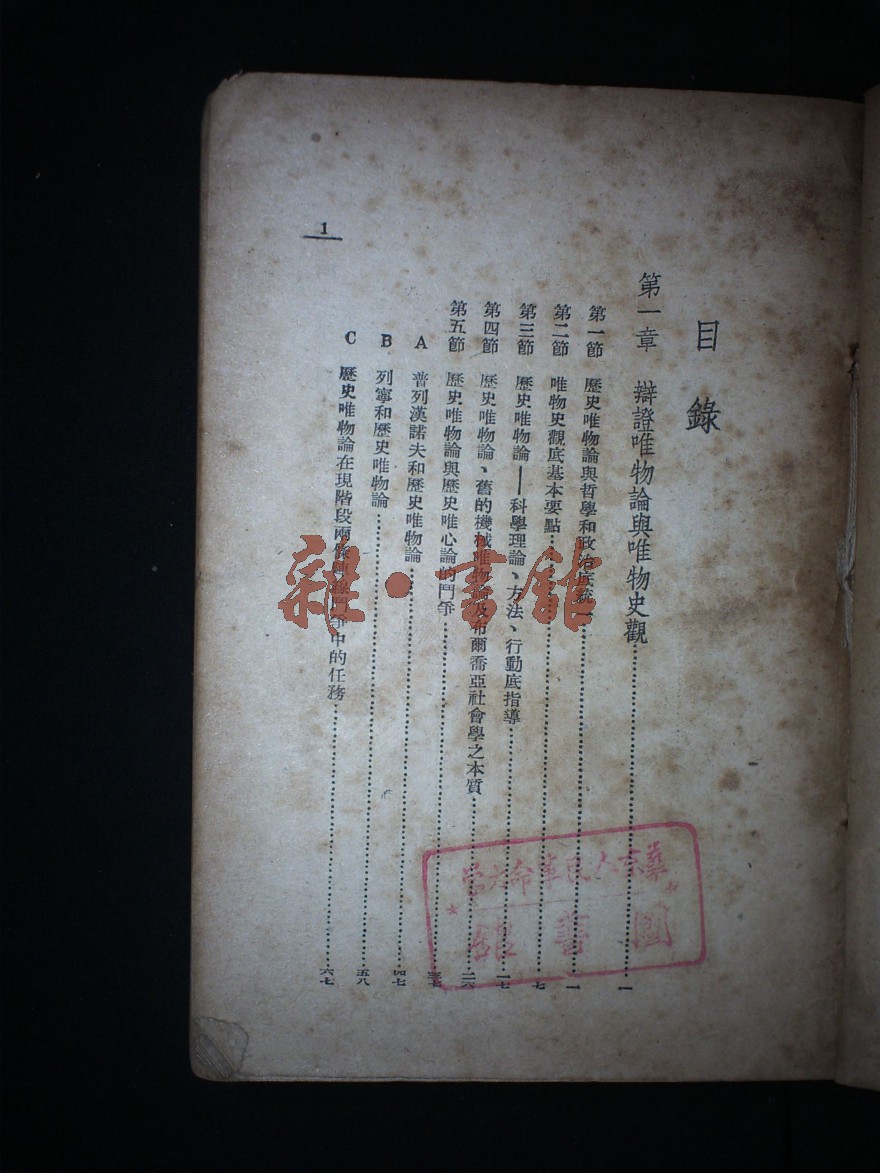 目錄
第一章 辯證唯物論與唯物史觀……一
第一節 歷史唯物論與哲學和政治底統一……一
第二節 唯物史觀底基本要點……七
第三節 歷史唯物論——科學理論、方法、行動底指導……一七
第四節 歷史唯物論、舊的機械唯物論及布爾喬亞社會學之本質……二六
第五節 歷史唯物論與歷史唯心論的鬥爭……三七
A 普列漢諾夫和歷史唯物論……四七
B 列寧和歷史唯物論……五八
C 歷史唯物論在現階段兩條陣線鬥爭中的任務……六七
1
雜·書館
人民革命大
圖書館